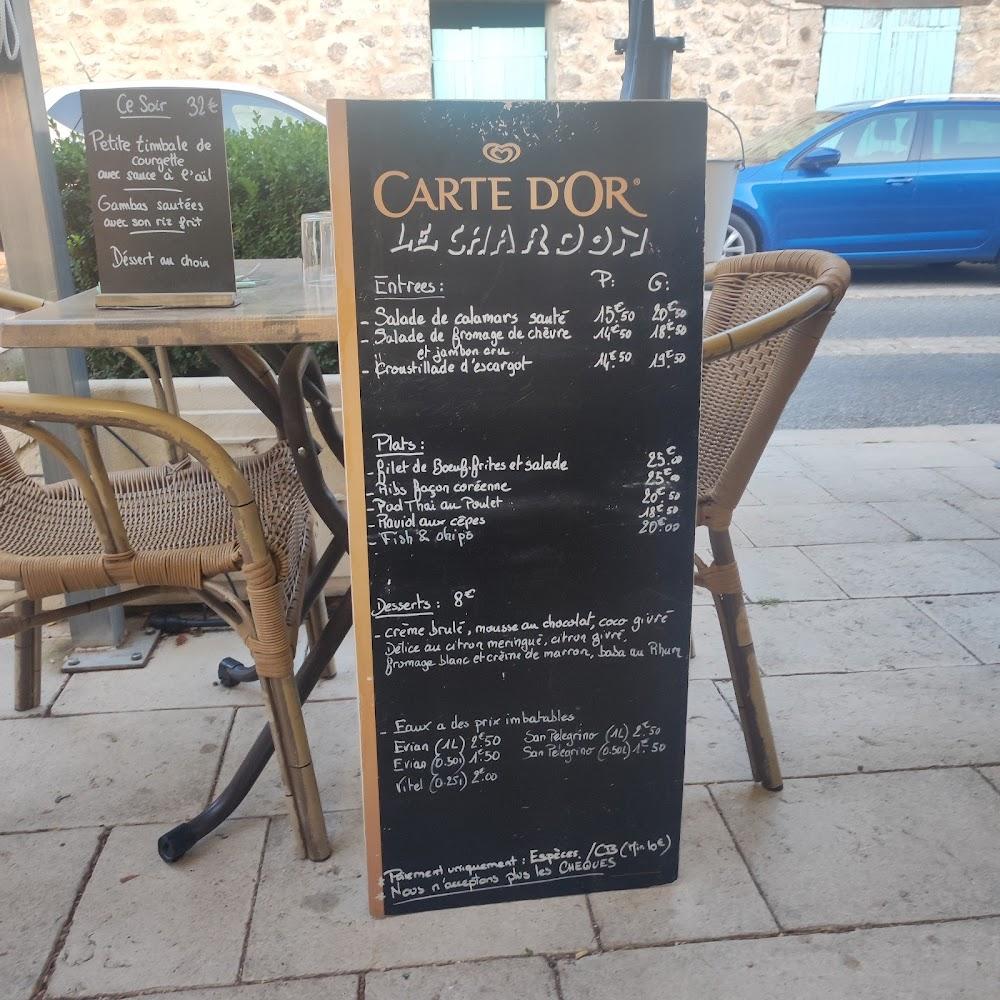 Ce Soir 32€
Petite timbale de
courgette
avec sauce à l'ail
Gambas sautées
avec son riz frit
Déssert au choix
CARTE D'OR®
LE CHARDON
Entrees : P: G:
- Salade de calamars sauté 15€50 20€50
- Salade de fromage de chèvre 14€50 18€50
et jambon cru
- Croustillade d'escargot 14€50 19€50
Plats :
- filet de Boeuf, frites et salade 25€00
- Ribs façon coréenne 25€00
- Pad Thai au Poulet 20€50
- Raviol aux cèpes 18€50
- Fish & chips 20€00
Desserts : 8€
- crème brulé, mousse au chocolat, coco givré
Délice au citron meringué, citron givré,
fromage blanc et crème de marron, baba au Rhum
- Eaux a des prix imbatables
Evian (1L) 2€50 San Pelegrino (1L) 2€50
Evian (0.50l) 1€50 San Pelegrino (0.50L) 1€50
Vitel (0.25l) 2€00
* Paiement uniquement : Espèces / CB (Min 10€)
* Nous n'acceptons plus les CHEQUES